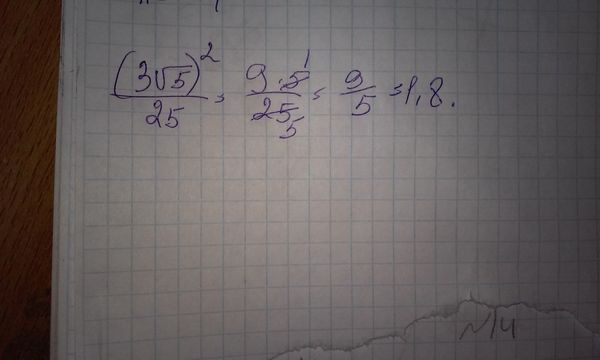 (3√5)²/25 = 9·5/25 = 9/5 = 1,8.
№14